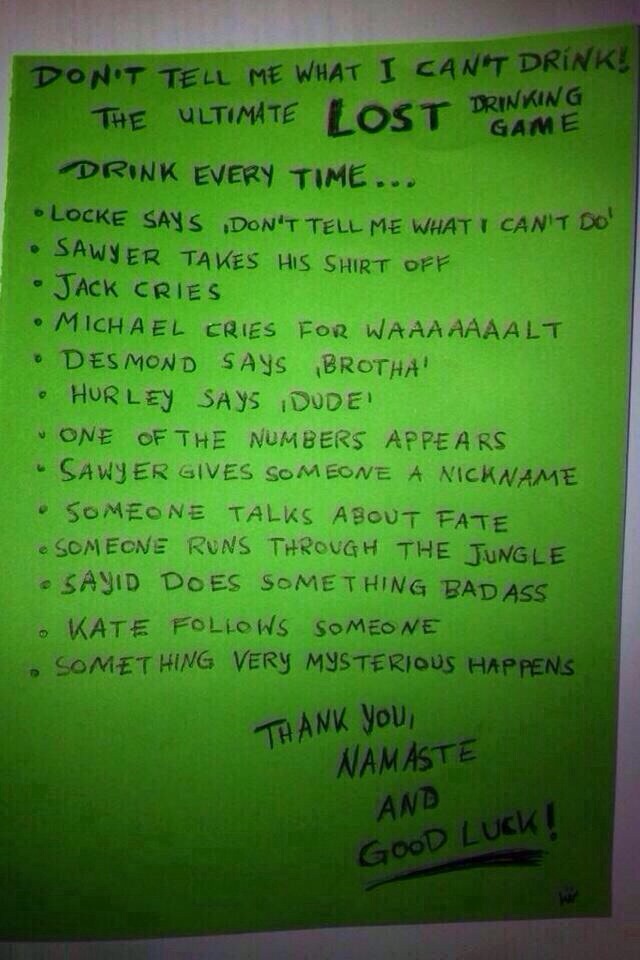 DON'T TELL ME WHAT I CAN'T DRINK!
THE ULTIMATE LOST DRINKING GAME
DRINK EVERY TIME...
• LOCKE SAYS ‚DON'T TELL ME WHAT I CAN'T DO'
• SAWYER TAKES HIS SHIRT OFF
• JACK CRIES
• MICHAEL CRIES FOR WAAAAAAALT
• DESMOND SAYS ‚BROTHA'
• HURLEY SAYS ‚DUDE'
• ONE OF THE NUMBERS APPEARS
• SAWYER GIVES SOMEONE A NICKNAME
• SOMEONE TALKS ABOUT FATE
• SOMEONE RUNS THROUGH THE JUNGLE
• SAYID DOES SOMETHING BADASS
• KATE FOLLOWS SOMEONE
• SOMETHING VERY MYSTERIOUS HAPPENS
THANK YOU,
NAMASTE
AND
GOOD LUCK!